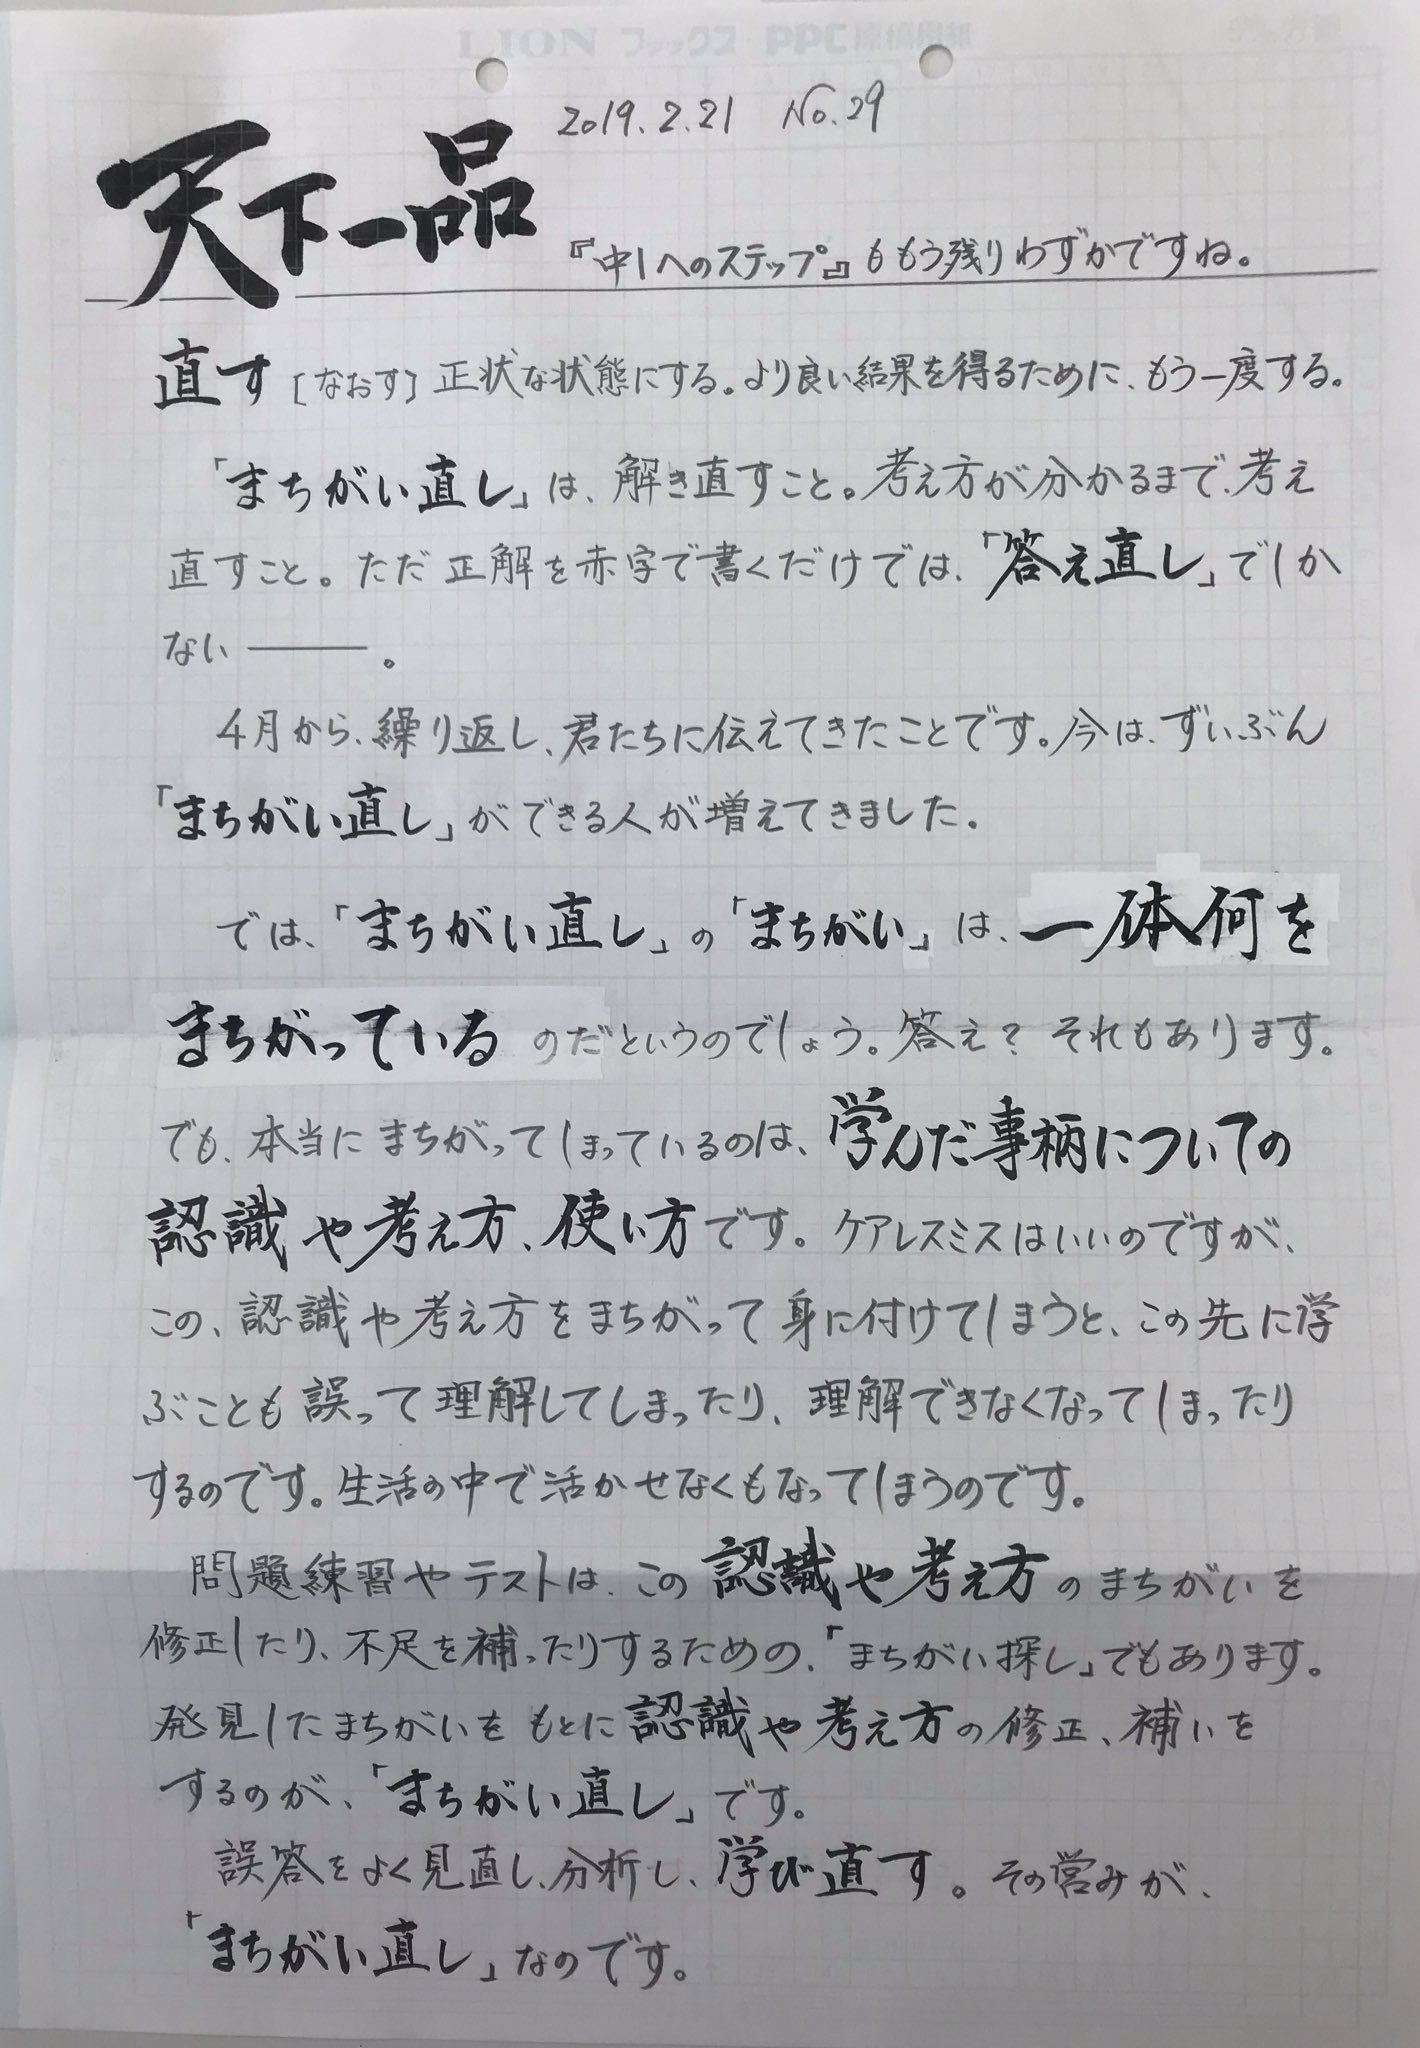 LION ファックス PPC原稿用紙
2019.2.21 No.29
天下一品
『中1へのステップ』ももう残りわずかですね。
直す[なおす]正状な状態にする。より良い結果を得るために、もう一度する。
「まちがい直し」は、解き直すこと。考え方が分かるまで、考え
直すこと。ただ正解を赤字で書くだけでは、「答え直し」でしか
ない――。
4月から、繰り返し、君たちに伝えてきたことです。今は、ずいぶん
「まちがい直し」ができる人が増えてきました。
では、「まちがい直し」の「まちがい」は、一体何を
まちがっているのだというのでしょう。答え？それもあります。
でも、本当にまちがってしまっているのは、学んだ事柄についての
認識や考え方、使い方です。ケアレスミスはいいのですが、
この、認識や考え方をまちがって身に付けてしまうと、この先に学
ぶことも誤って理解してしまったり、理解できなくなってしまったり
するのです。生活の中で活かせなくもなってしまうのです。
問題練習やテストは、この認識や考え方のまちがいを
修正したり、不足を補ったりするための、「まちがい探し」でもあります。
発見したまちがいをもとに認識や考え方の修正、補いを
するのが、「まちがい直し」です。
誤答をよく見直し、分析し、学び直す。その営みが、
「まちがい直し」なのです。